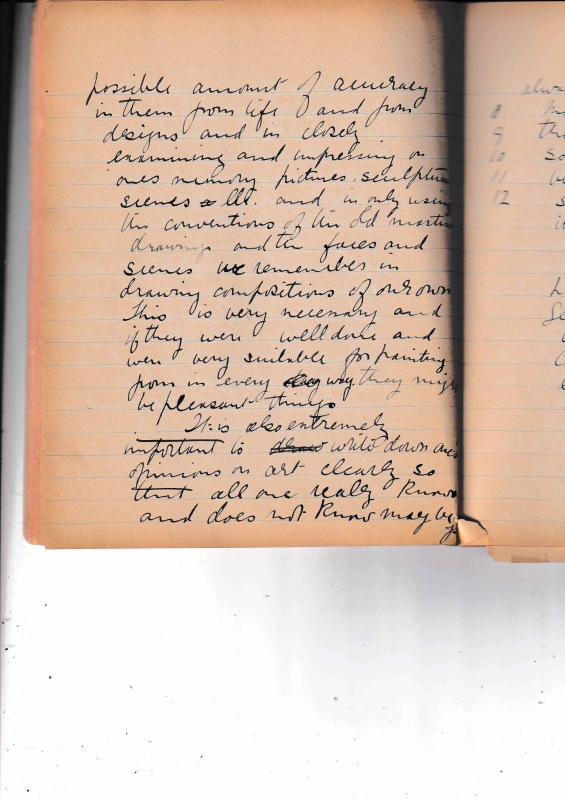 possible amount of accuracy
in them from life and from
designs and in closely
examining and impressing on
ones memory pictures, sculpture
scenes &
and in only using
the conventions of the old masters
drawings and the faces and
scenes we remember in
drawing compositions of our own
This is very necessary and
if they were well done and
were very suitable for painting
from in every way they might
be pleasant things
It is also extremely
important is write down one's
opinions on art clearly so
that all one really knows
and does not know may be
alwa
8
9 th
10 so
11 be
12 s